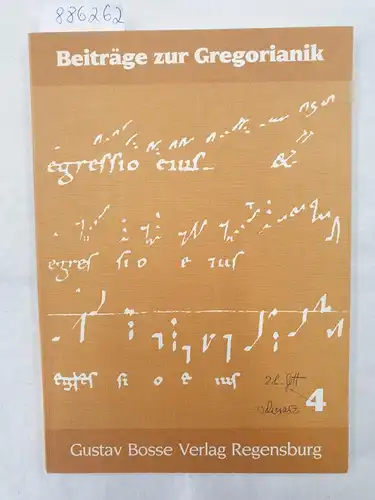 886262
Beiträge zur Gregorianik
egressio eius
egres sio e ius
egres si o e ius
4
Gustav Bosse Verlag Regensburg